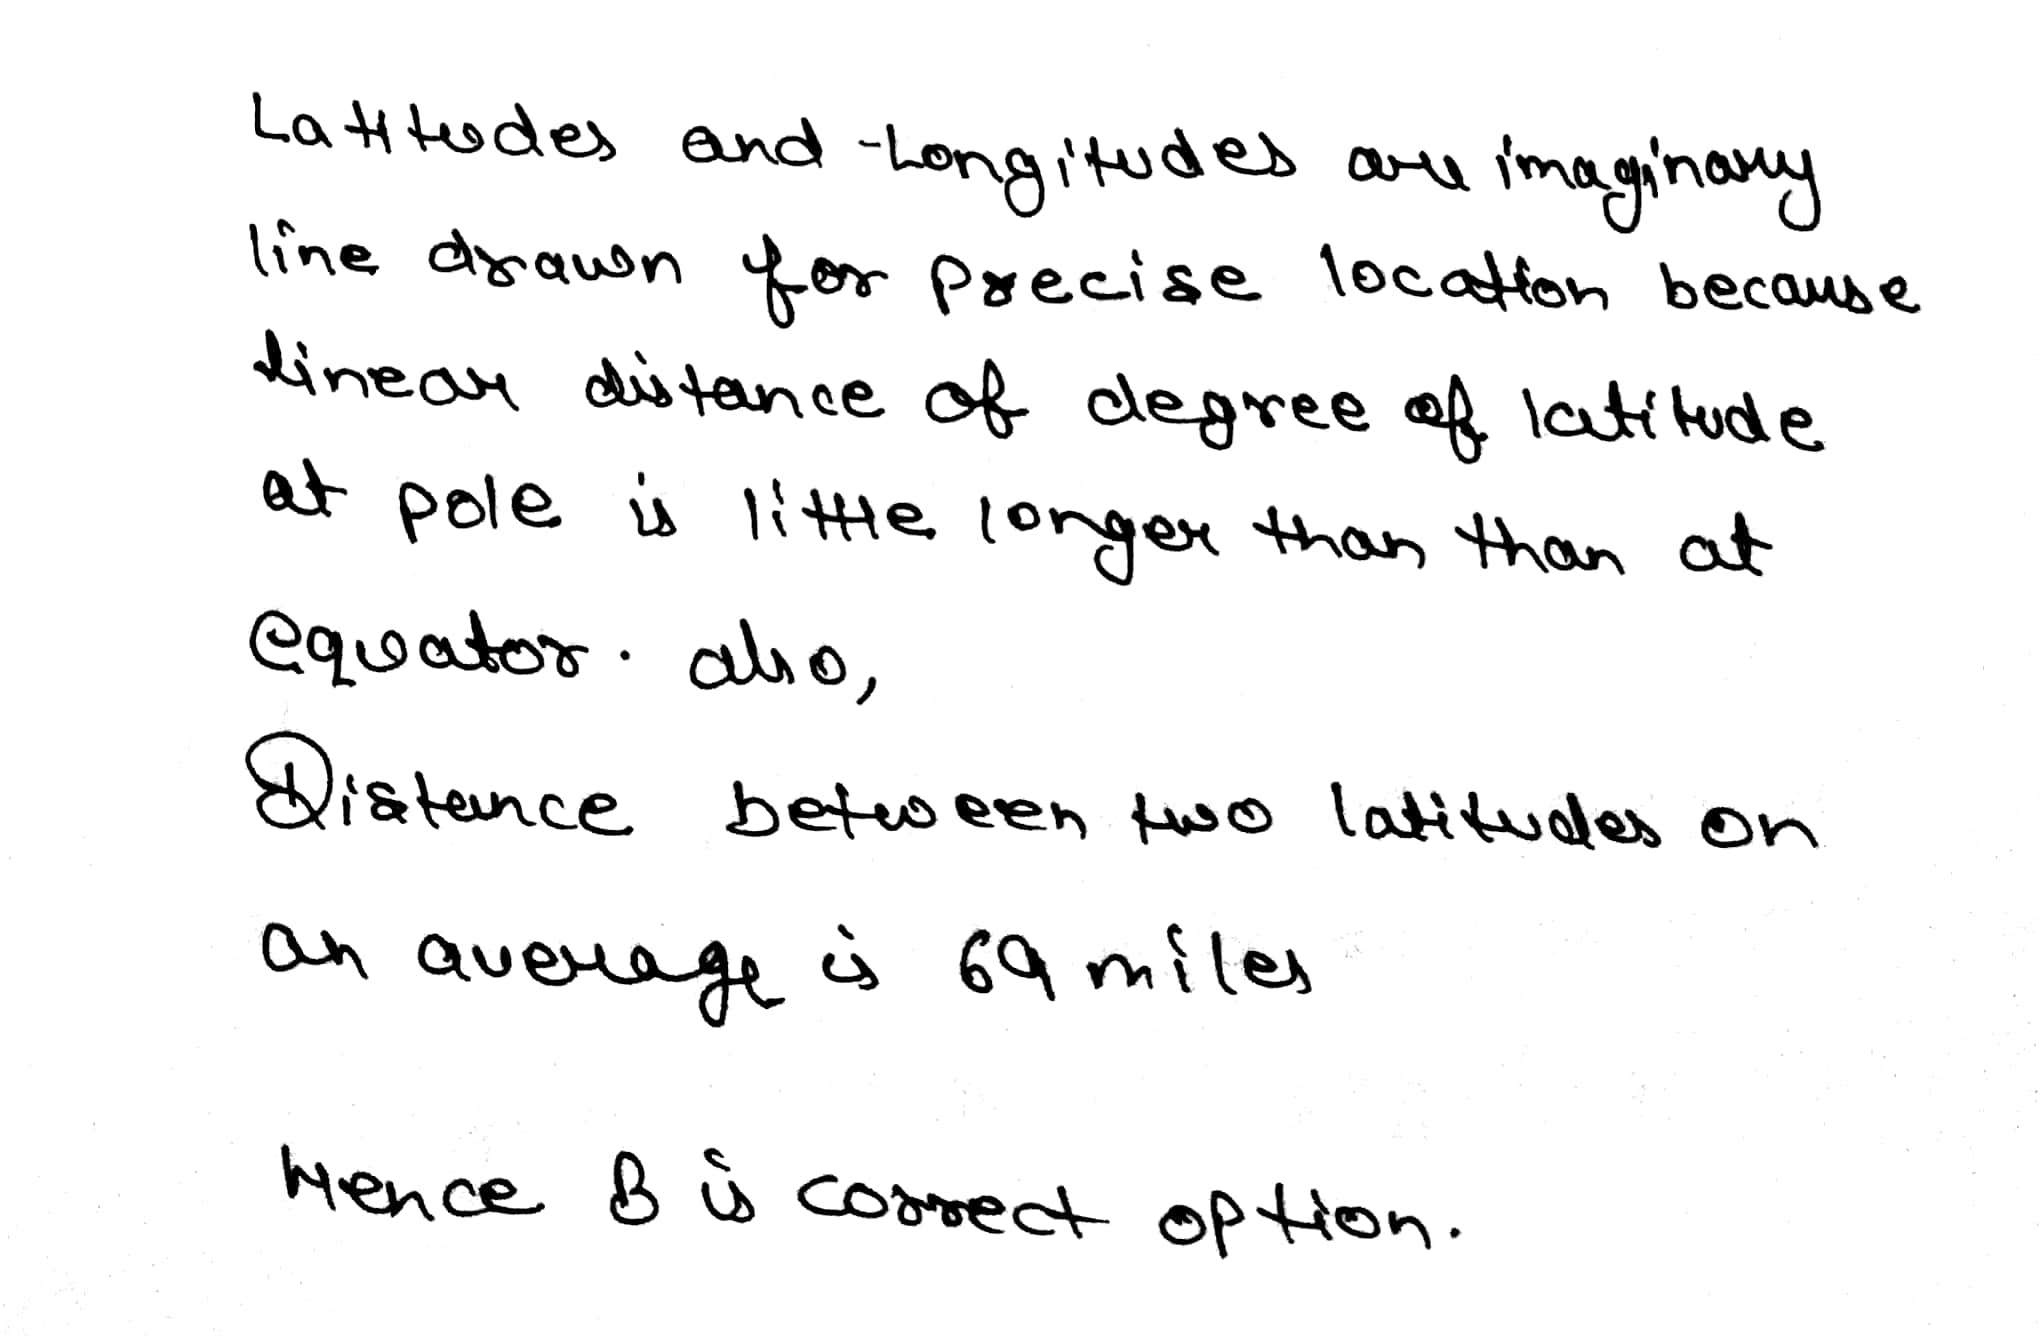 Lattudes and Longitudes are imaginary
line drawn for Precise location because
linear distance of degree of latitude
at pole is little longer than than at
equator. also,
Distance between two latitudes on
an average is 69 miles
Hence B is correct option.